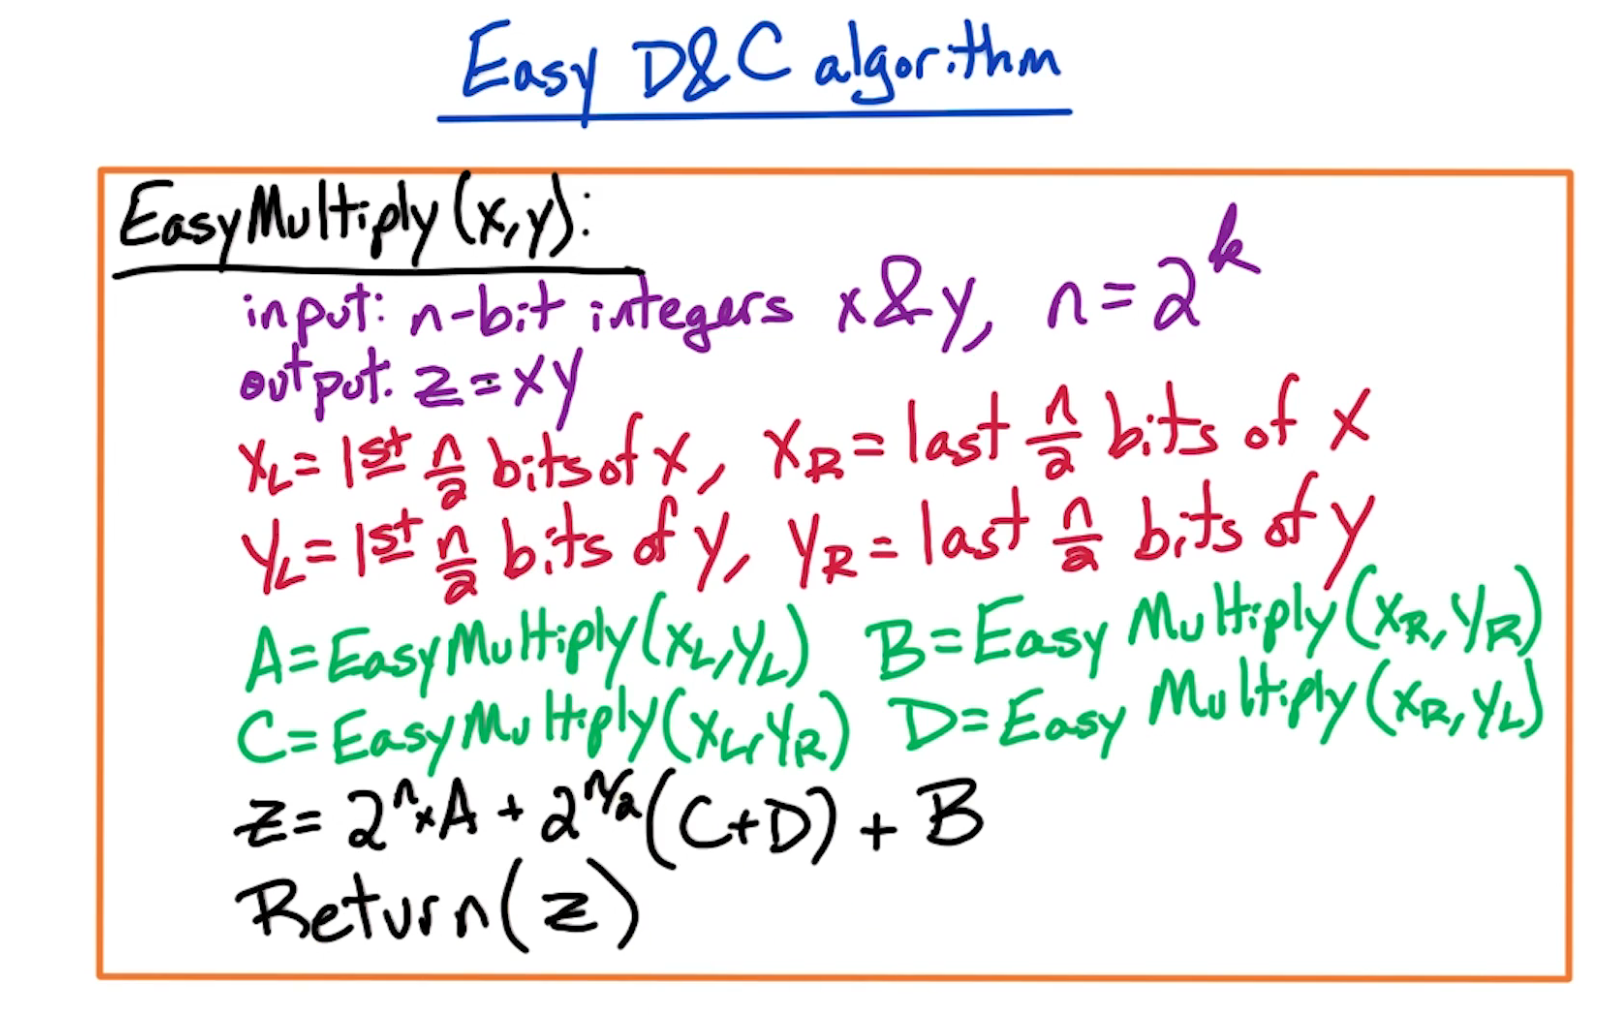 Easy D&C algorithm
EasyMultiply(x,y):
input: n-bit integers x&y, n=2^k
output: z=xy
x_L = 1st n/2 bits of x, x_R = last n/2 bits of x
y_L = 1st n/2 bits of y, y_R = last n/2 bits of y
A=EasyMultiply(x_L,y_L) B=EasyMultiply(x_R,y_R)
C=EasyMultiply(x_L,y_R) D=EasyMultiply(x_R,y_L)
z= 2^n × A + 2^(n/2) (C+D) + B
Return(z)